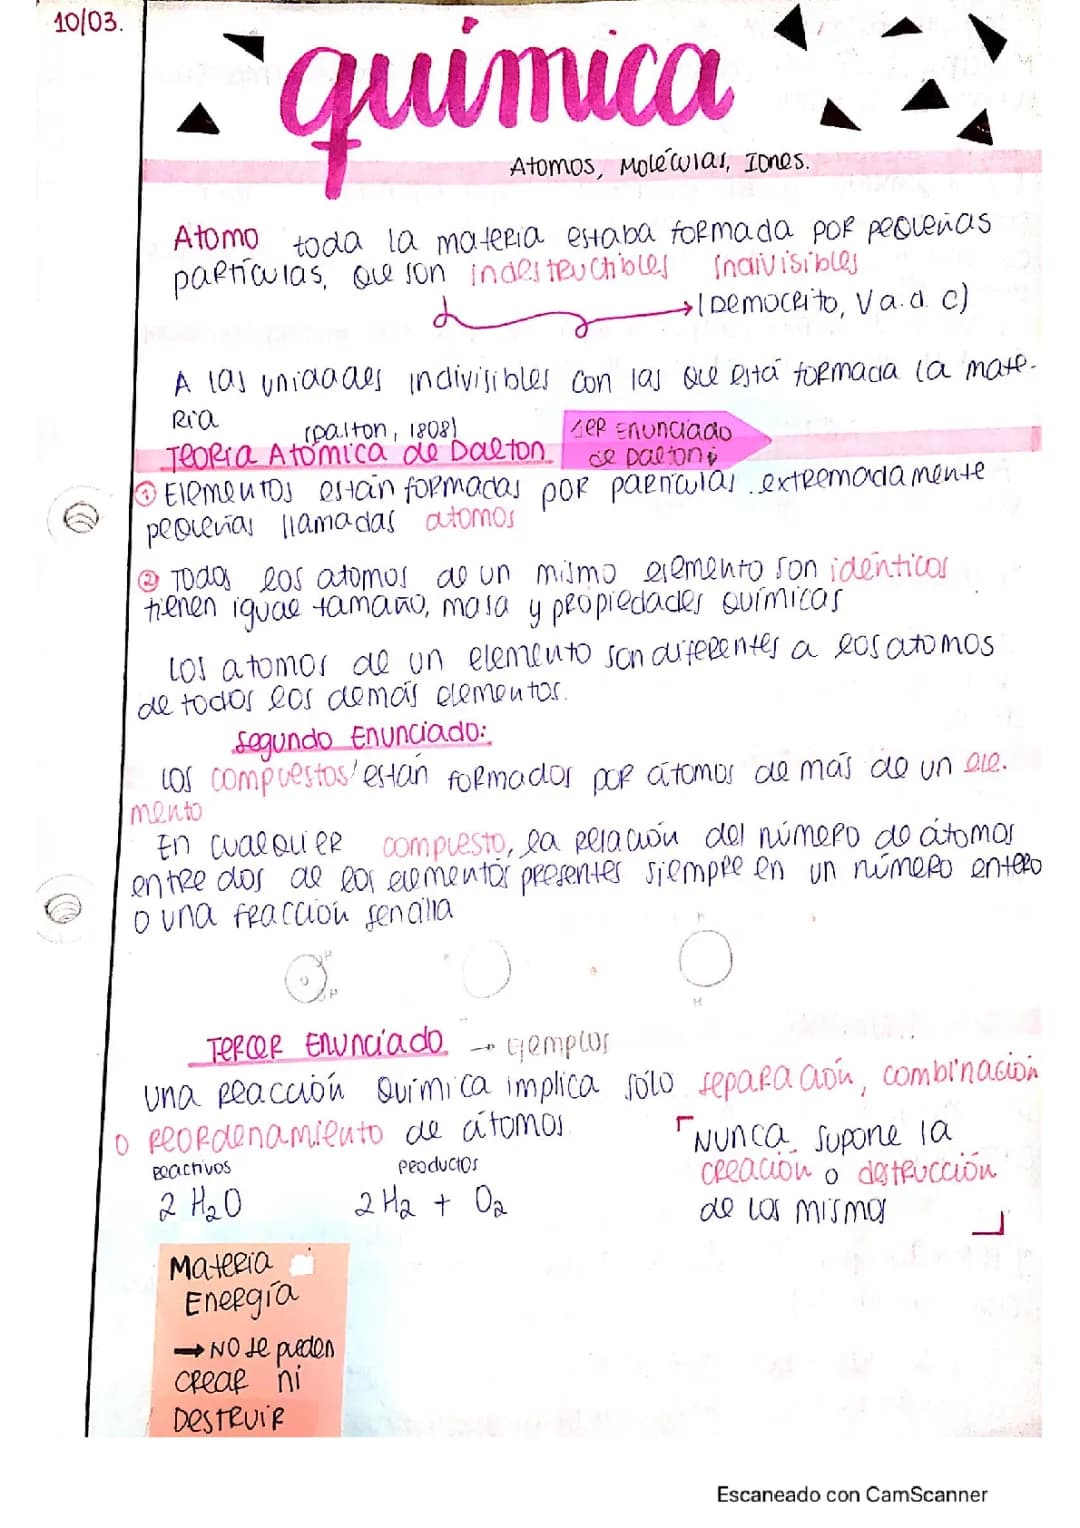 10/03.
química
Atomos, Moléculas, Iones.
Atomo toda la materia estaba formada por pequeñas
partículas, que son indestructibles indivisibles
(Democrito, V a.d. c)
A las unidades indivisibles con las que está formada la mate-
ria
(Dalton, 1808)
Teoria Atómica de Dalton
1er Enunciado
de Dalton:
① Elementos están formadas por particulas extremadamente
pequeñas llamadas atomos
② Todos los atomos de un mismo elemento son idénticos
tienen igual tamaño, masa y propiedades químicas
Los atomos de un elemento son diferentes a los atomos
de todos los demás elementos.
Segundo Enunciado:
Los compuestos están formados por átomos de más de un ele-
mento
En cualquier compuesto, la relación del número de átomos
entre dos de los elementos presentes siempre en un número entero
o una fracción sencilla
H
H
H
Tercer Enunciado → Ejemplos
una reacción química implica sólo separación, combinación
o reordenamiento de átomos
Nunca supone la
creación o destrucción
de los mismos
Reactivos
Productos
2 H₂O
2 H₂ + O₂
Materia
Energía
→ No se pueden
crear ni
Destruir
Escaneado con CamScanner